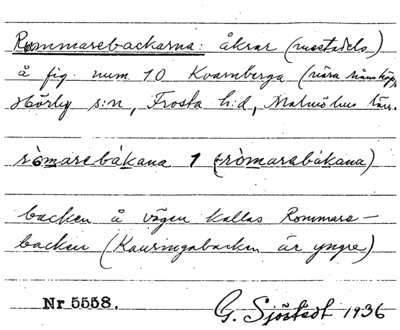 Rommarebackarna: åkrar (mestadels)
å fig. num 10 Kvarnberga (nära
Hörby s:n, Frosta h:d, Malmöhus län.
ròmarebákana 1 (ròmarabákana)
backen å vägen kallas Rommare-
backen (Kauringabacken är yngre)
Nr 5558.
G. Sjöstedt 1936